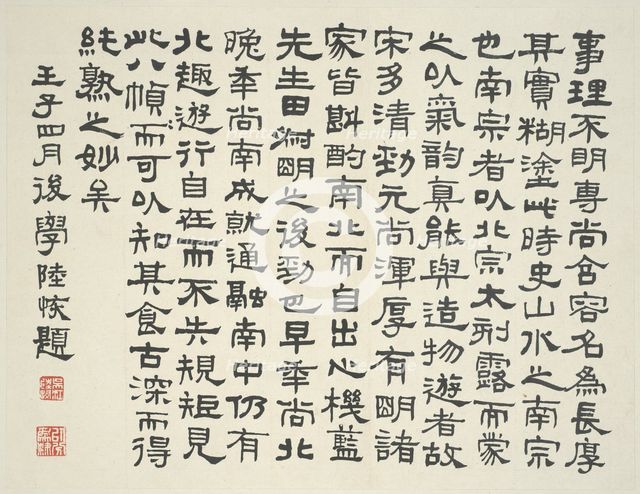 事理不明專尚含容名為長厚
其實糊塗此時史山水之南宗
也南宗者以北宗太刻露而蒙
之以氣韵真能與造物遊者故
宋多清勁元尚渾厚有明諸
家皆斟酌南北而自出心機藍
先生田叔明之後勁也早年尚北
晚年尚南成就通融南中仍有
北趣遊行自在而不失規矩見
此八幀而可以知其食古深而得
純熟之妙矣
壬子四月後學陸恢題